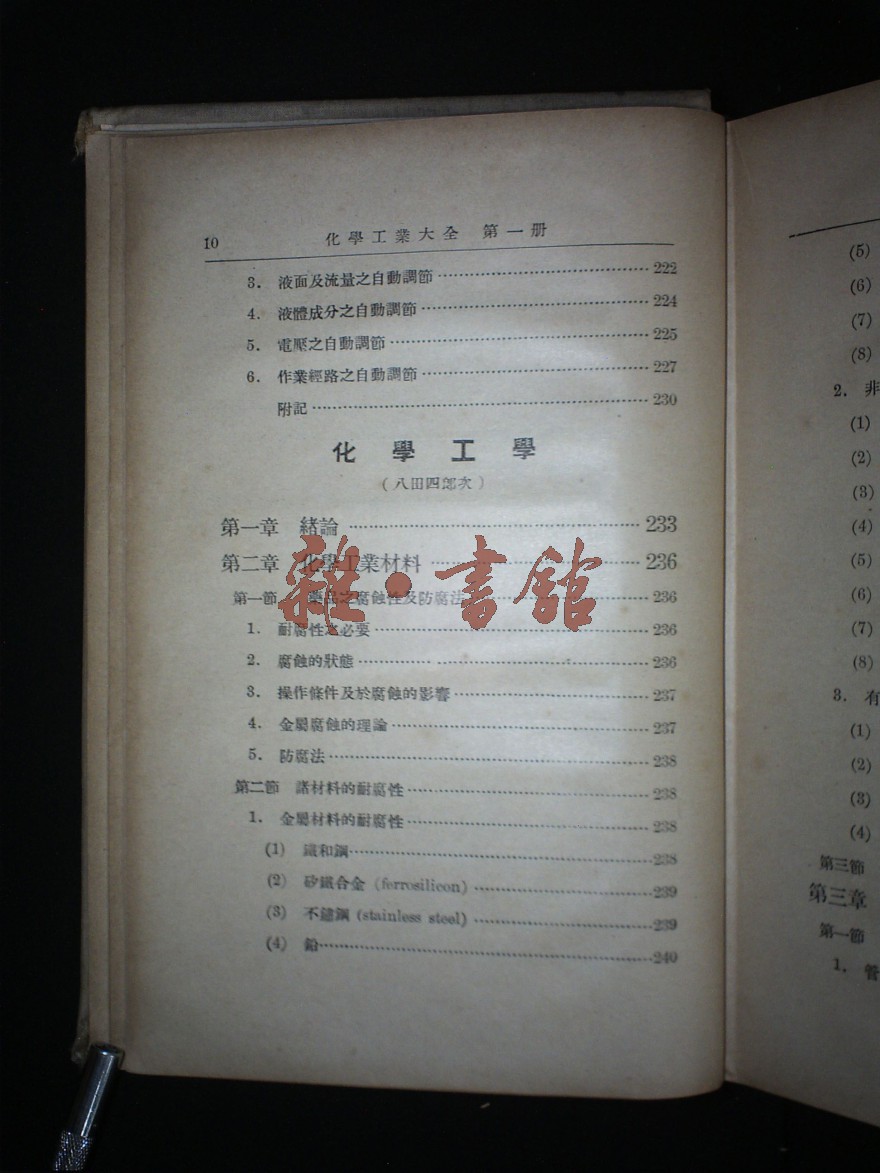 10 化學工業大全 第一册
3. 液面及流量之自動調節 222
4. 液體成分之自動調節 224
5. 電壓之自動調節 225
6. 作業經路之自動調節 227
附記 230
化學工學
(八田四郎次)
第一章 緒論 233
第二章 化學工業材料 236
第一節 藥品之腐蝕性及防腐法 236
1. 耐腐性之必要 236
2. 腐蝕的狀態 236
3. 操作條件及於腐蝕的影響 237
4. 金屬腐蝕的理論 237
5. 防腐法 238
第二節 諸材料的耐腐性 238
1. 金屬材料的耐腐性 238
(1) 鐵和鋼 238
(2) 矽鐵合金 (ferrosilicon) 239
(3) 不鏽鋼 (stainless steel) 239
(4) 鉛 240
雜·書館
(5)
(6)
(7)
(8)
2. 非
(1)
(2)
(3)
(4)
(5)
(6)
(7)
(8)
3. 有
(1)
(2)
(3)
(4)
第三節
第三章
第一節
1. 管